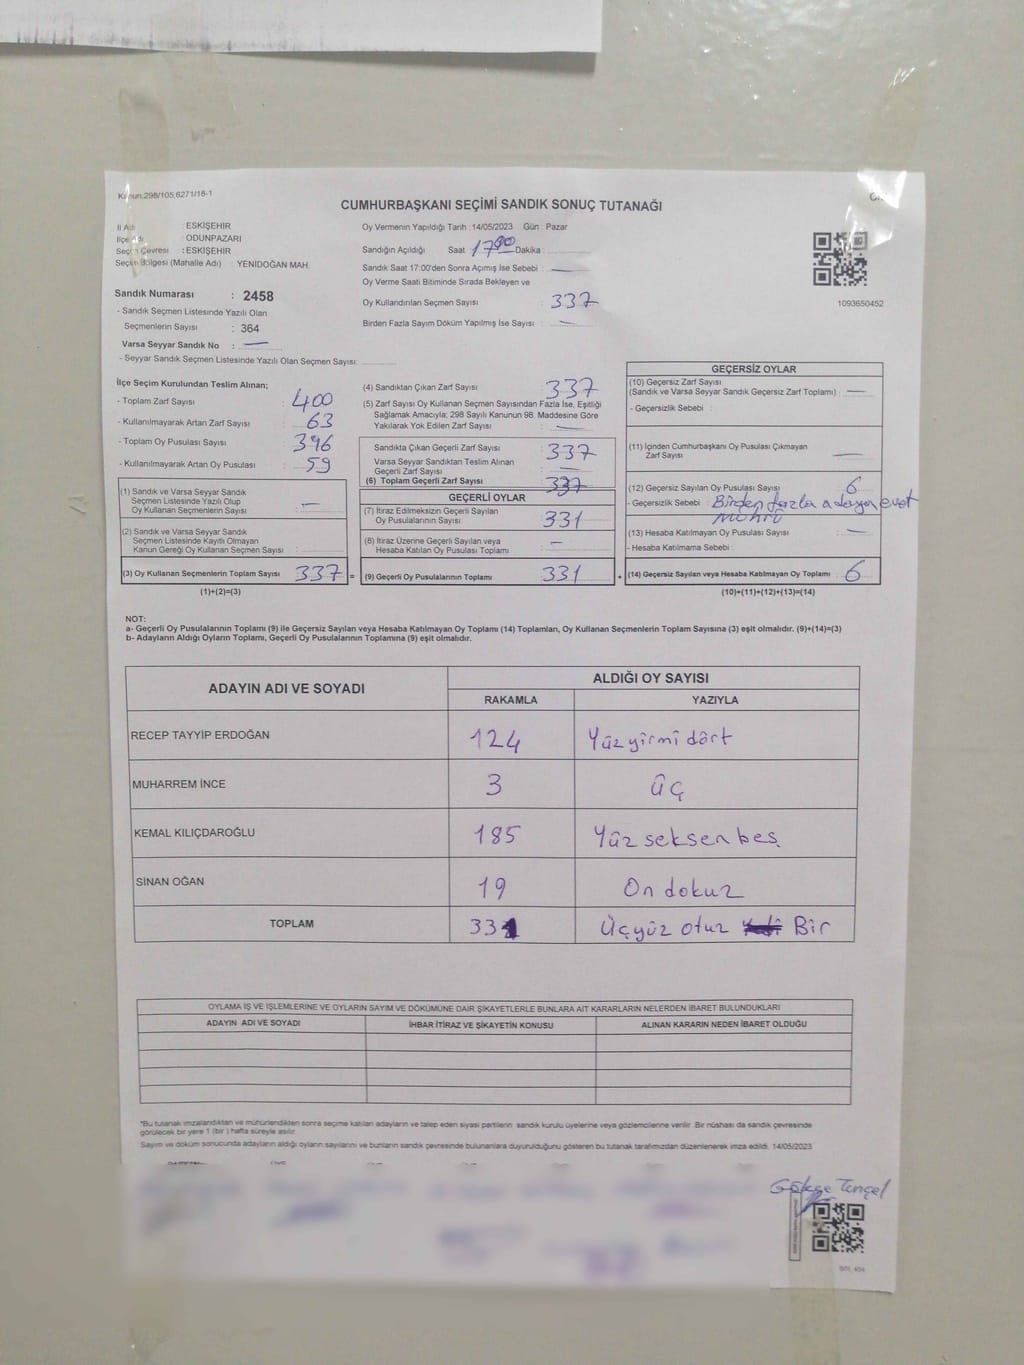 Kanun:298/105,6271/18-1
CUMHURBAŞKANI SEÇİMİ SANDIK SONUÇ TUTANAĞI
İl Adı : ESKİŞEHİR
İlçe Adı : ODUNPAZARI
Seçim Çevresi : ESKİŞEHİR
Seçim Bölgesi (Mahalle Adı) : YENİDOĞAN MAH.
Sandık Numarası : 2458
- Sandık Seçmen Listesinde Yazılı Olan
Seçmenlerin Sayısı : 364
Varsa Seyyar Sandık No : —
- Seyyar Sandık Seçmen Listesinde Yazılı Olan Seçmen Sayısı:
Oy Vermenin Yapıldığı Tarih :14/05/2023 Gün : Pazar
Sandığın Açıldığı Saat 17 00 Dakika:
Sandık Saat 17:00'den Sonra Açımış İse Sebebi : —
Oy Verme Saati Bitiminde Sırada Bekleyen ve
Oy Kullandırılan Seçmen Sayısı : 337
Birden Fazla Sayım Döküm Yapılmış İse Sayısı : —
1093650452
İlçe Seçim Kurulundan Teslim Alınan;
- Toplam Zarf Sayısı : 400
- Kullanılmayarak Artan Zarf Sayısı : 63
- Toplam Oy Pusulası Sayısı : 396
- Kullanılmayarak Artan Oy Pusulası : 59
(1) Sandık ve Varsa Seyyar Sandık
Seçmen Listesinde Yazılı Olup
Oy Kullanan Seçmenlerin Sayısı : —
(2) Sandık ve Varsa Seyyar Sandık
Seçmen Listesinde Kayıtlı Olmayan
Kanun Gereği Oy Kullanan Seçmen Sayısı :
(3) Oy Kullanan Seçmenlerin Toplam Sayısı 337 =
(1)+(2)=(3)
(4) Sandıktan Çıkan Zarf Sayısı : 337
(5) Zarf Sayısı Oy Kullanan Seçmen Sayısından Fazla İse, Eşitliği
Sağlamak Amacıyla; 298 Sayılı Kanunun 98. Maddesine Göre
Yakılarak Yok Edilen Zarf Sayısı : —
Sandıkta Çıkan Geçerli Zarf Sayısı : 337
Varsa Seyyar Sandıktan Teslim Alınan
Geçerli Zarf Sayısı : —
(6) Toplam Geçerli Zarf Sayısı : 337
GEÇERLİ OYLAR
(7) İtiraz Edilmeksizin Geçerli Sayılan
Oy Pusulalarının Sayısı : 331
(8) İtiraz Üzerine Geçerli Sayılan veya
Hesaba Katılan Oy Pusulası Toplamı : —
(9) Geçerli Oy Pusulalarının Toplamı : 331 +
GEÇERSİZ OYLAR
(10) Geçersiz Zarf Sayısı
(Sandık ve Varsa Seyyar Sandık Geçersiz Zarf Toplamı) : —
- Geçersizlik Sebebi :
(11) İçinden Cumhurbaşkanı Oy Pusulası Çıkmayan
Zarf Sayısı : —
(12) Geçersiz Sayılan Oy Pusulası Sayısı : 6
- Geçersizlik Sebebi : Birden fazla adaya evet
mührü
(13) Hesaba Katılmayan Oy Pusulası Sayısı : —
- Hesaba Katılmama Sebebi :
(14) Geçersiz Sayılan veya Hesaba Katılmayan Oy Toplamı : 6
(10)+(11)+(12)+(13)=(14)
NOT:
a- Geçerli Oy Pusulalarının Toplamı (9) ile Geçersiz Sayılan veya Hesaba Katılmayan Oy Toplamı (14) Toplamları, Oy Kullanan Seçmenlerin Toplam Sayısına (3) eşit olmalıdır. (9)+(14)=(3)
b- Adayların Aldığı Oyların Toplamı, Geçerli Oy Pusulalarının Toplamına (9) eşit olmalıdır.
ADAYIN ADI VE SOYADI ALDIĞI OY SAYISI
RAKAMLA YAZIYLA
RECEP TAYYİP ERDOĞAN 124 Yüzyirmi dört
MUHARREM İNCE 3 üç
KEMAL KILIÇDAROĞLU 185 Yüz seksen beş
SİNAN OĞAN 19 On dokuz
TOPLAM 331 Üçyüz otuz Bir
OYLAMA İŞ VE İŞLEMLERİNE VE OYLARIN SAYIM VE DÖKÜMÜNE DAİR ŞİKAYETLERLE BUNLARA AİT KARARLARIN NELERDEN İBARET BULUNDUKLARI
ADAYIN ADI VE SOYADI İHBAR İTİRAZ VE ŞİKAYETİN KONUSU ALINAN KARARIN NEDEN İBARET OLDUĞU
*Bu tutanak imzalandıktan ve mühürlendikten sonra seçime katılan adayların ve talep eden siyasi partilerin sandık kurulu üyelerine veya gözlemcilerine verilir. Bir nüshası da sandık çevresinde
görülecek bir yere 1 (bir) hafta süreyle asılır.
Sayım ve döküm sonucunda adayların aldığı oyların sayılarını ve bunların sandık çevresinde bulunanlara duyurulduğunu gösteren bu tutanak tarafımızdan düzenlenerek imza edildi. 14/05/2023
Gökçe Tunçel